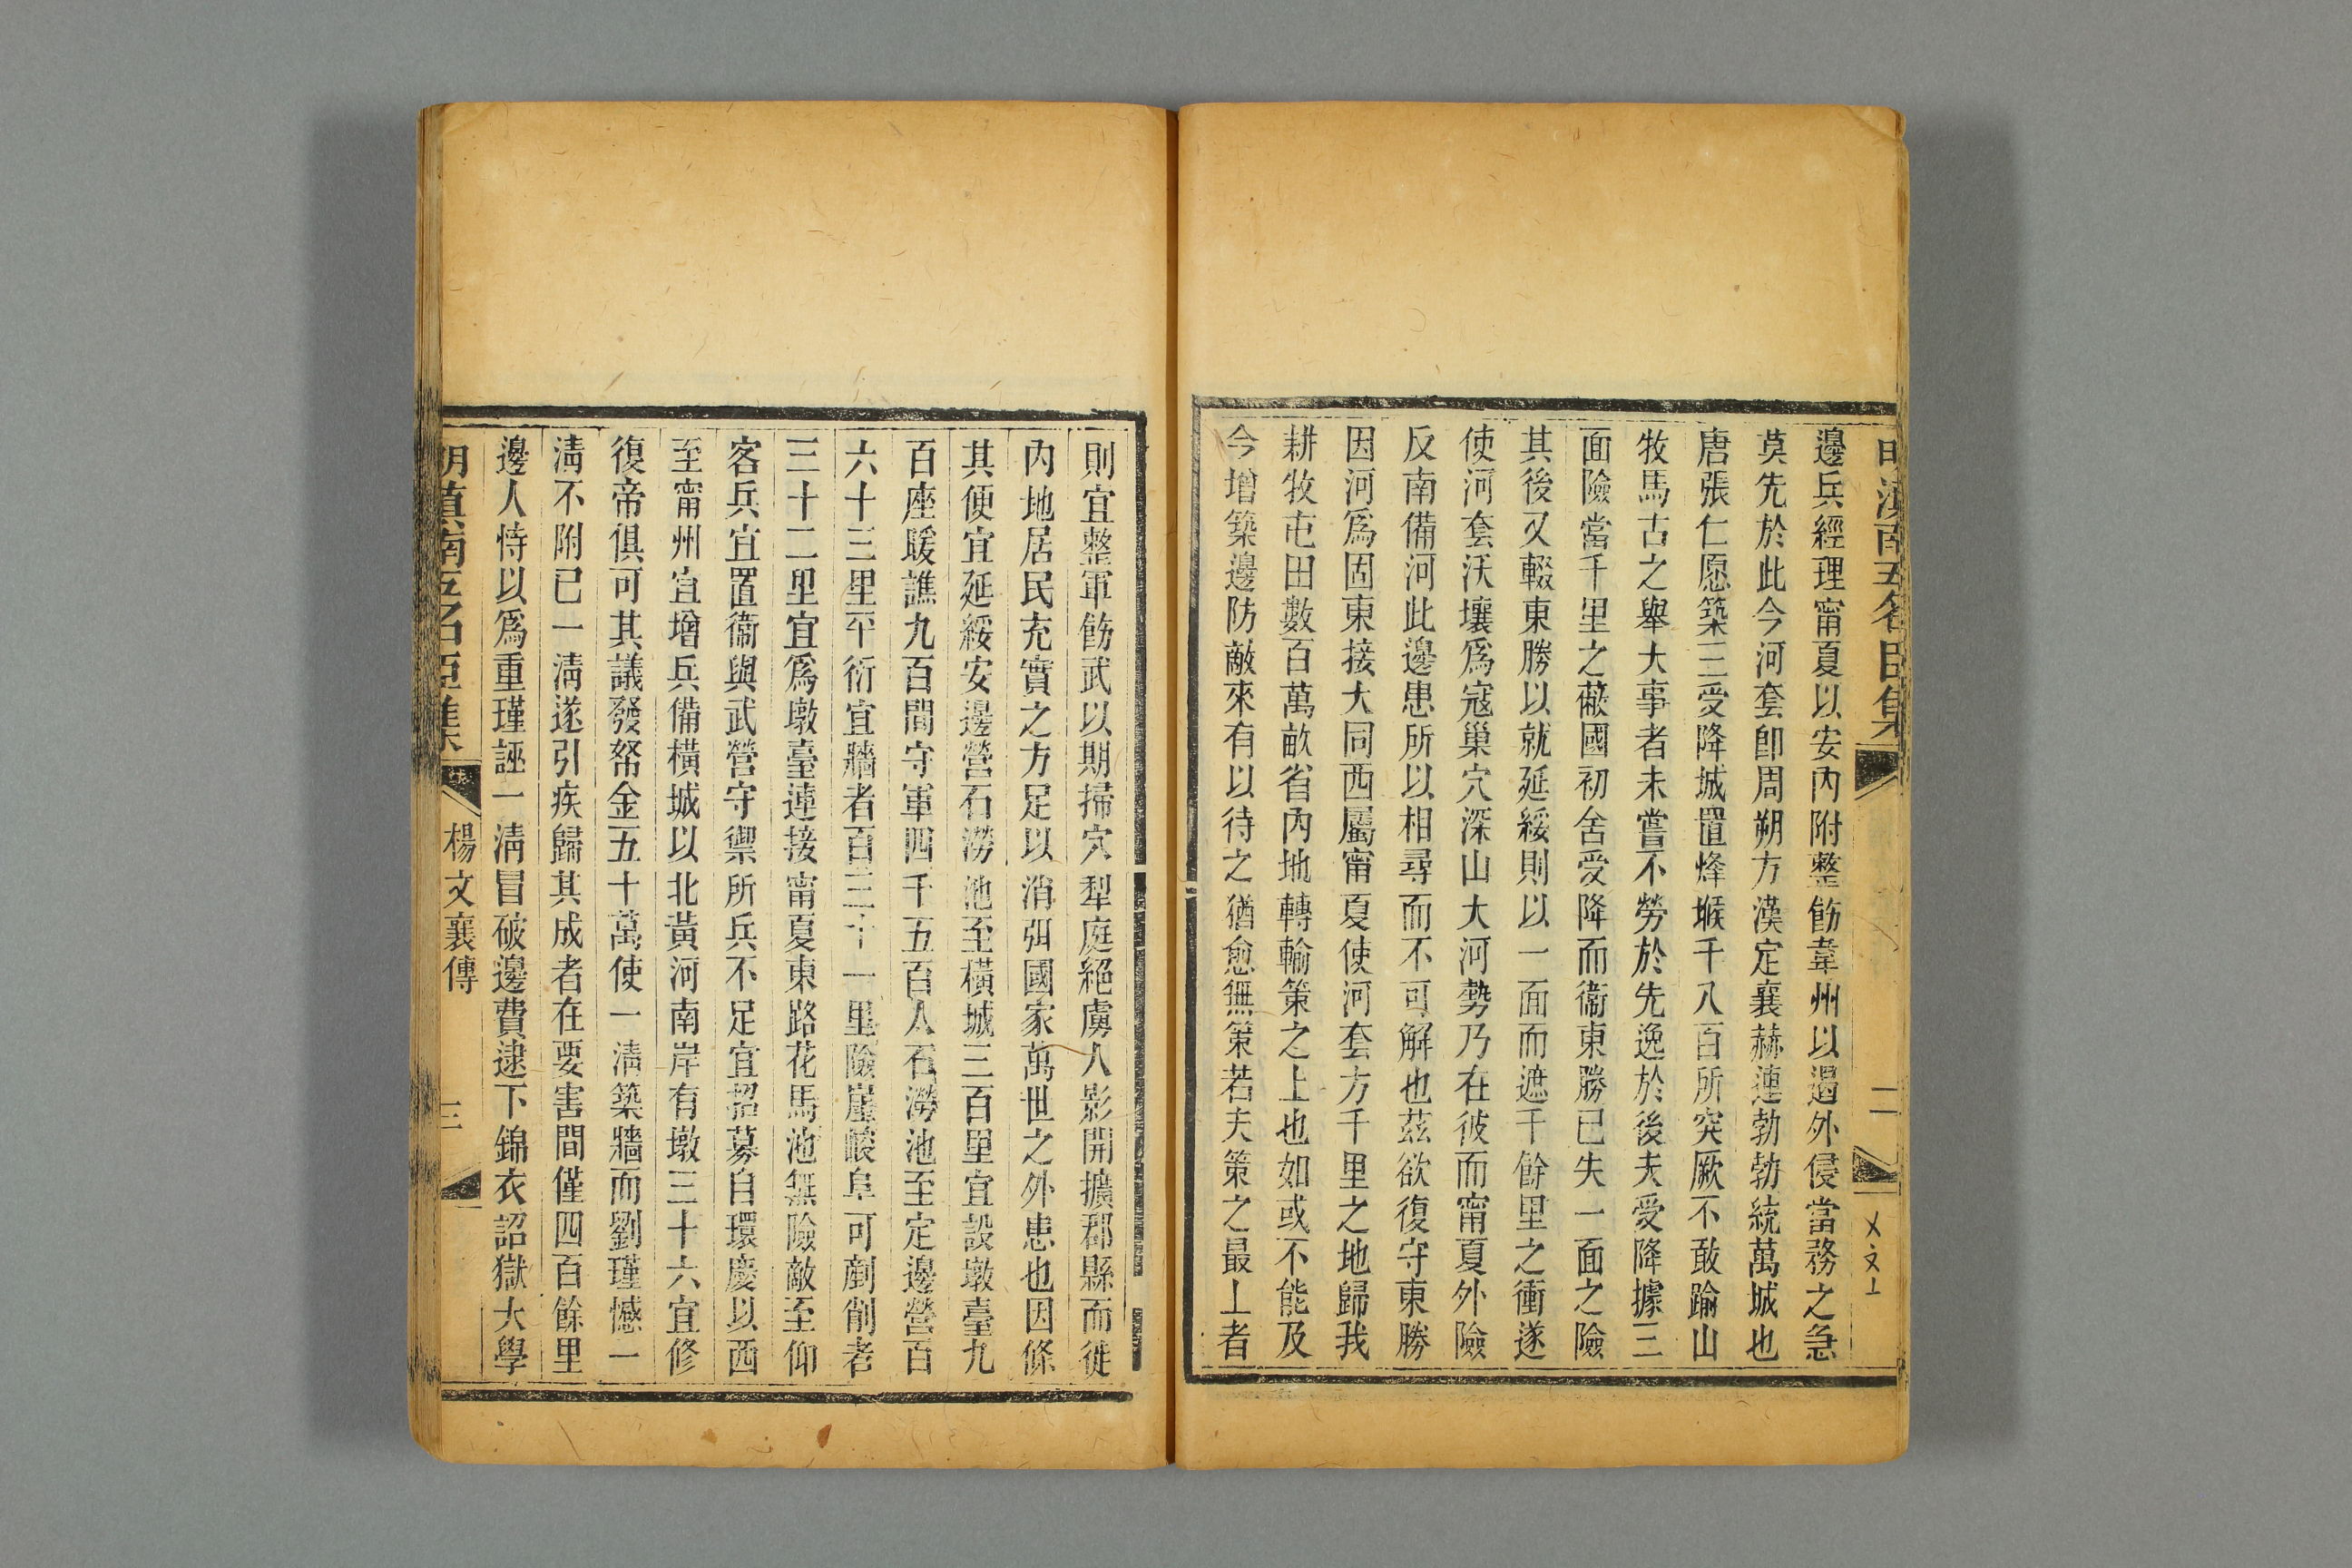 明滇南五名臣集
二
邊兵經理甯夏以安內附整飭韋州以遏外侵當務之急
莫先於此今河套卽周朔方漢定襄赫連勃勃統萬城也
唐張仁愿築三受降城置烽堠千八百所突厥不敢踰山
牧馬古之舉大事者未嘗不勞於先逸於後夫受降據三
面險當千里之蔽國初舍受降而衞東勝已失一面之險
其後又輟東勝以就延綏則以一面而遮千餘里之衝遂
使河套沃壤爲寇巢穴深山大河勢乃在彼而甯夏外險
反南備河此邊患所以相尋而不可解也茲欲復守東勝
因河爲固東接大同西屬甯夏使河套方千里之地歸我
耕牧屯田數百萬畝省內地轉輸策之上也如或不能及
今增築邊防敵來有以待之猶愈無策若夫策之最上者
則宜整軍飭武以期掃穴犁庭絕虜人影開擴郡縣而徙
內地居民充實之方足以消弭國家萬世之外患也因條
其便宜延綏安邊營石澇池至橫城三百里宜設墩臺九
百座暖譙九百間守軍四千五百人石澇池至定邊營百
六十三里平衍宜牆者百三十一里險崖峻阜可剷削者
三十二里宜爲墩臺連接甯夏東路花馬池無險敵至仰
客兵宜置衞興武營守禦所兵不足宜招募自環慶以西
至甯州宜增兵備橫城以北黃河南岸有墩三十六宜修
復帝俱可其議發帑金五十萬使一清築牆而劉瑾憾一
清不附已一清遂引疾歸其成者在要害間僅四百餘里
邊人恃以爲重瑾誣一清冒破邊費逮下錦衣詔獄大學
明滇南五名臣集
楊文襄傳
三